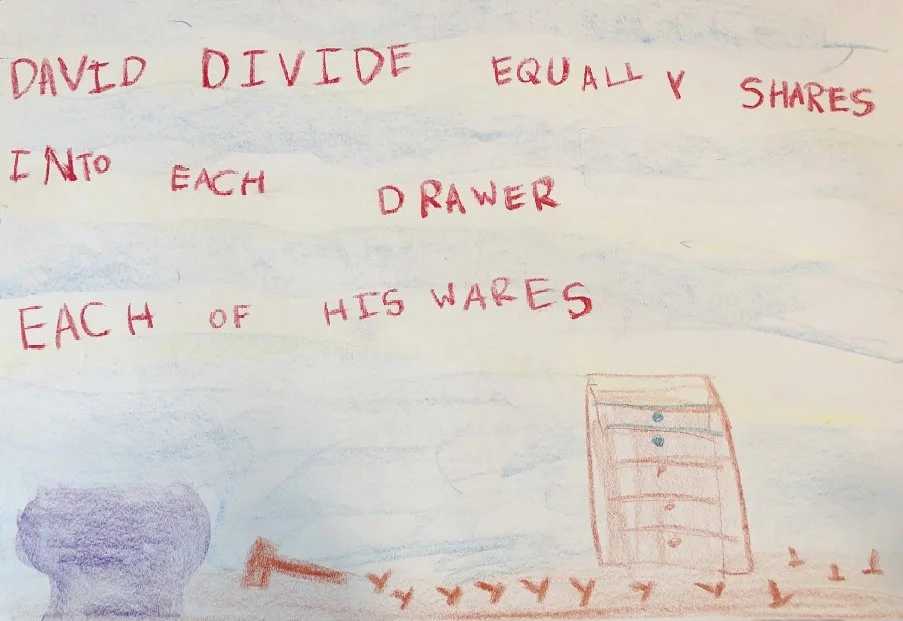 DAVID DIVIDE EQUALLY SHARES
INTO EACH DRAWER
EACH OF HIS WARES